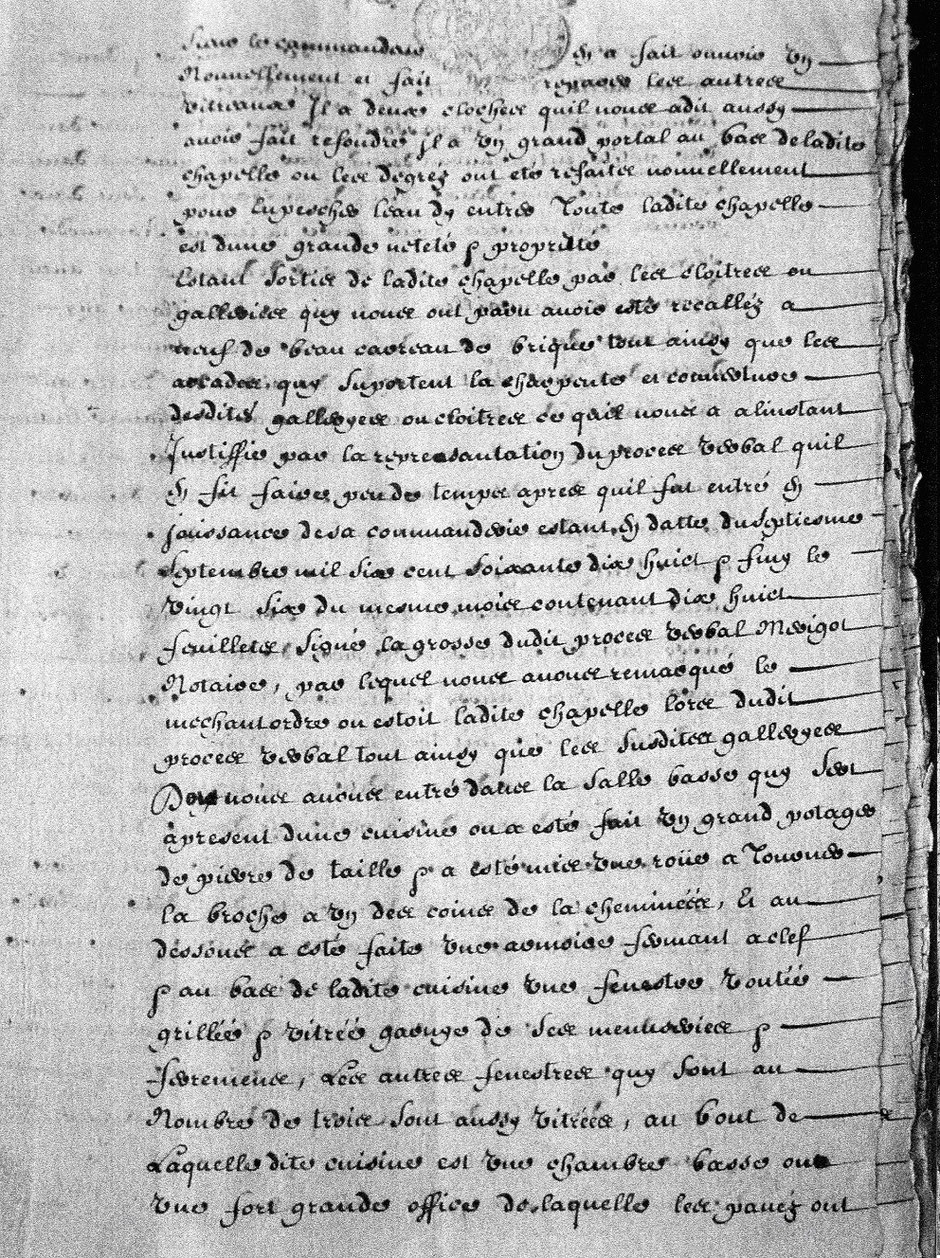 Sieur le commandeur en a fait ouvrir vn
Nouvellement et fait reparer les autres
vitreaux Il a deux cloches quil nous adit aussy
auoir fait refondre jl a vn grand portal au bas deladite
chapelle ou les degrez ont eté refaites nouuellement
pour empescher leau dy entrer Toute ladite chapelle
est dune grande neteté & propriette
Estant sortis de ladite chapelle par les cloitres ou
galleries quy nous ont paru auoir esté recallez a
neuf de beau carreau de brique tout ainsy que les
arcades quy suportent la charpente et couuerture
desdites galleryes ou cloitres ce quil nous a alinstant
Justiffie par la representation du proces verbal quil
en fit faire peu de temps apres quil fut entré en
jouissance desa commanderie estant en datte du septiesme
septembre mil six cent soixante dix huict & finy le
vingt six du mesme mois contenant dix huict
feuillets, signé la grosse dudit proces verbal Merigot
Notaire, par lequel nous auons remarqué le
mechant ordre ou estoit ladite chapelle lors dudit
proces verbal tout ainsy que les susdites galleryes
nous auons entré dans la salle basse quy sert
apresent dune cuisine ou a esté fait vn grand potager
de pierre de taille & a esté mis vne roüe a Tourner
la broche a vn des coins de la cheminées, Et au
dessous a esté faite vne armoire fermant a clef
& au bas de ladite cuisine vne fenestre voutéé
grilléé & vitréé garnye de ses menuiseries &
ferremens, Les autres fenestres quy sont au
Nombre de trois sont aussy vitréés, au bout de
Laquelle dite cuisine est vne chambre basse ou
vne fort grande office de laquelle les pavez ont